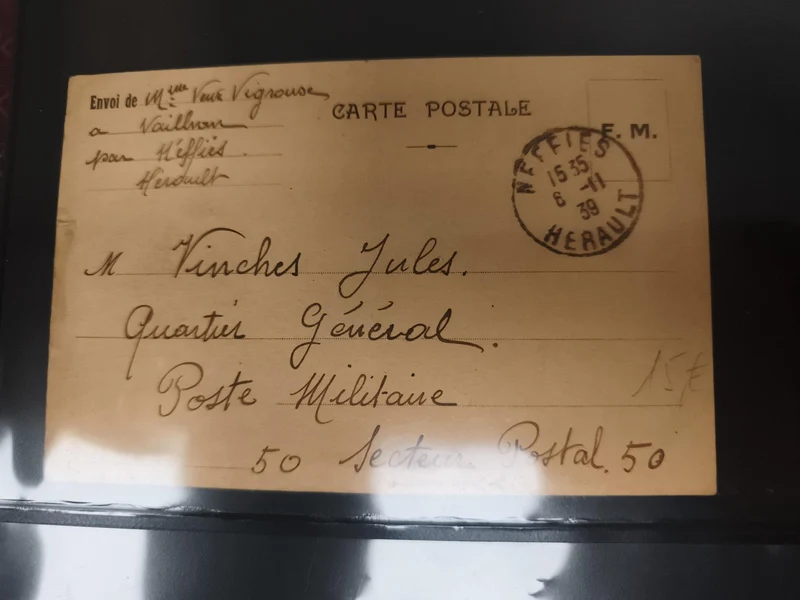 Envoi de Mme Veuve Vigrouse
a Vailhan
par Néffiés.
Hérault
CARTE POSTALE
F. M.
NEFFIES
15 35
6 -11
39
HERAULT
M Vinches Jules.
Quartier Général.
Poste Militaire
50 Secteur Postal. 50
15€